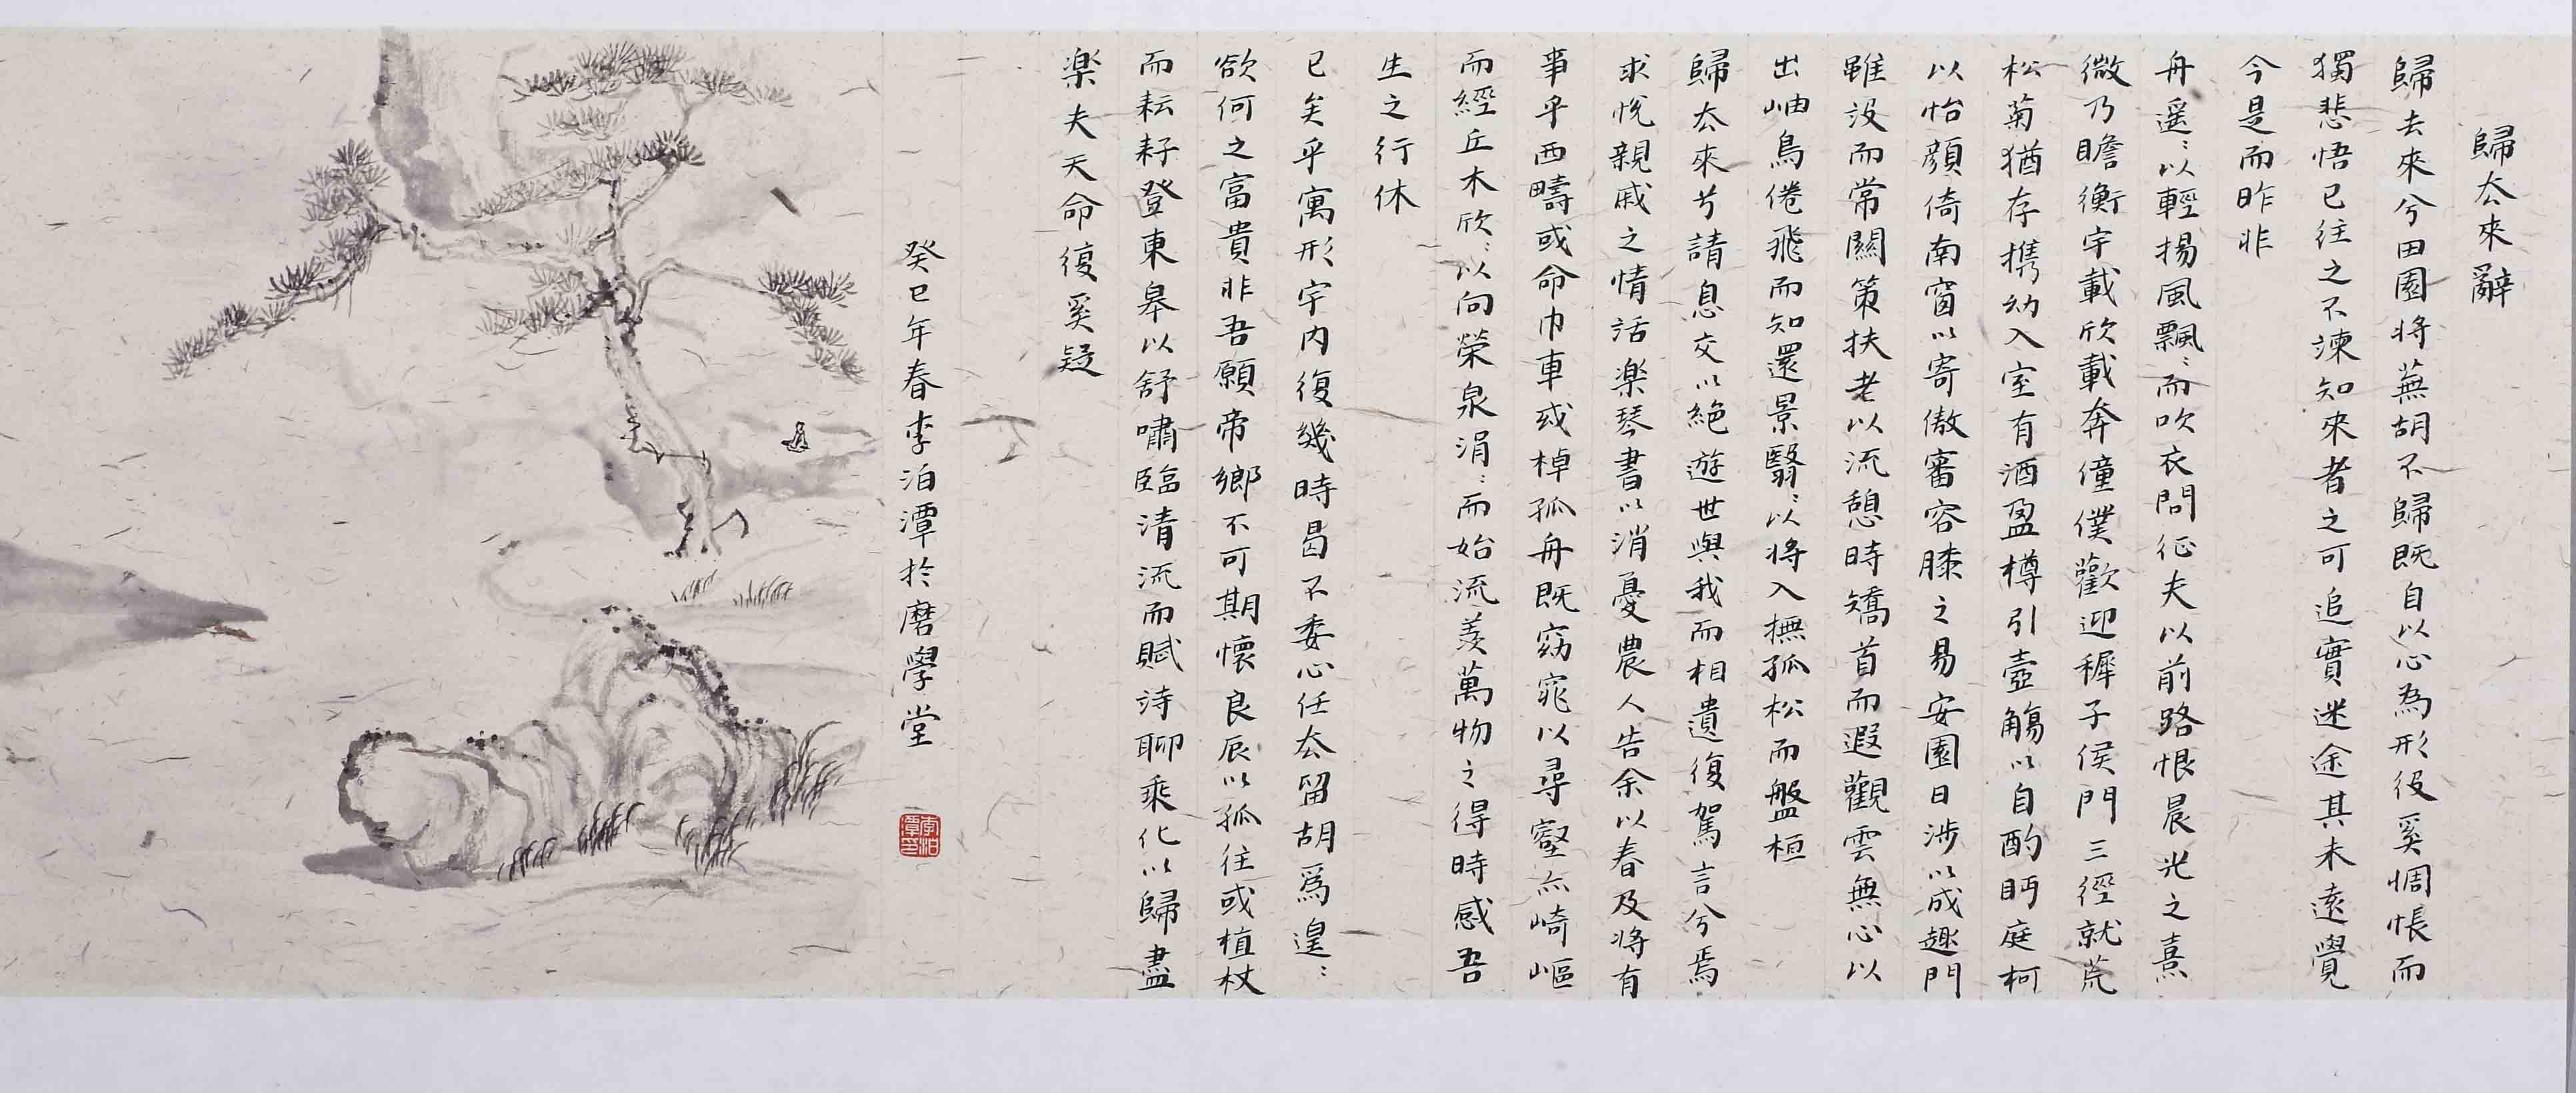 歸厺來辭
歸去來兮田園将蕪胡不歸既自以心為形役奚惆悵而
獨悲悟已往之不諫知來者之可追實迷途其未遠覺
今是而昨非
舟遥〻以輕揚風飄〻而吹衣問征夫以前路恨晨光之熹
微乃瞻衡宇載欣載奔僮僕歡迎稺子侯門三徑就荒
松菊猶存携幼入室有酒盈樽引壺觴以自酌眄庭柯
以怡顔倚南窗以寄傲審容膝之易安園日涉以成趣門
雖設而常關策扶老以流憩時矯首而遐觀雲無心以
出岫鳥倦飛而知還景翳〻以将入撫孤松而盤桓
歸厺來兮請息交以絶遊世與我而相遺復駕言兮焉
求悅親戚之情話楽琴書以消憂農人告余以春及将有
事乎西疇或命巾車或棹孤舟既窈窕以尋壑亦崎嶇
而經丘木欣〻以向榮泉涓〻而始流羨萬物之得時感吾
生之行休
已矣乎寓形宇内復幾時曷不委心任厺留胡爲遑〻
欲何之富貴非吾願帝鄉不可期懷良辰以孤往或植杖
而耘耔登東皋以舒嘯臨清流而賦詩聊乘化以歸盡
楽夫天命復奚疑
癸巳年春李泊潭於磨學堂
李泊潭印